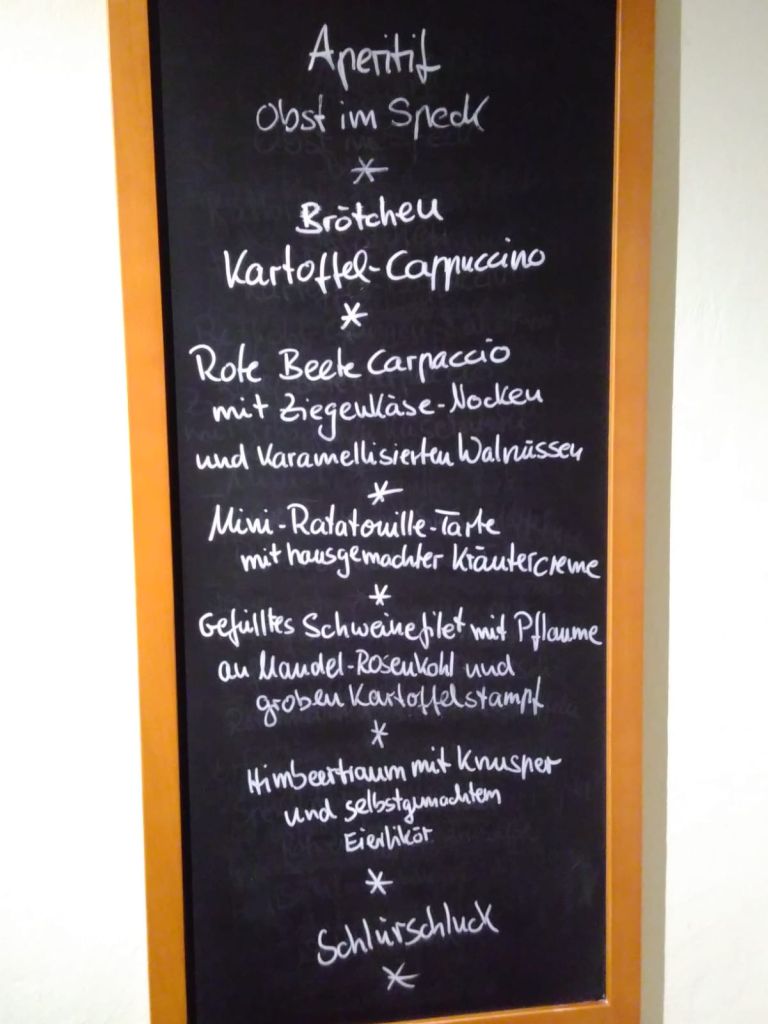 Aperitif
Obst im Speck
*
Brötchen
Kartoffel-Cappuccino
*
Rote Beete Carpaccio
mit Ziegenkäse-Nocken
und karamellisierten Walnüssen
*
Mini-Ratatouille-Tarte
mit hausgemachter Kräutercreme
*
Gefülltes Schweinefilet mit Pflaume
an Mandel-Rosenkohl und
groben Kartoffelstampf
*
Himbeertraum mit Knusper
und selbstgemachtem
Eierlikör
*
Schlürschluck
*